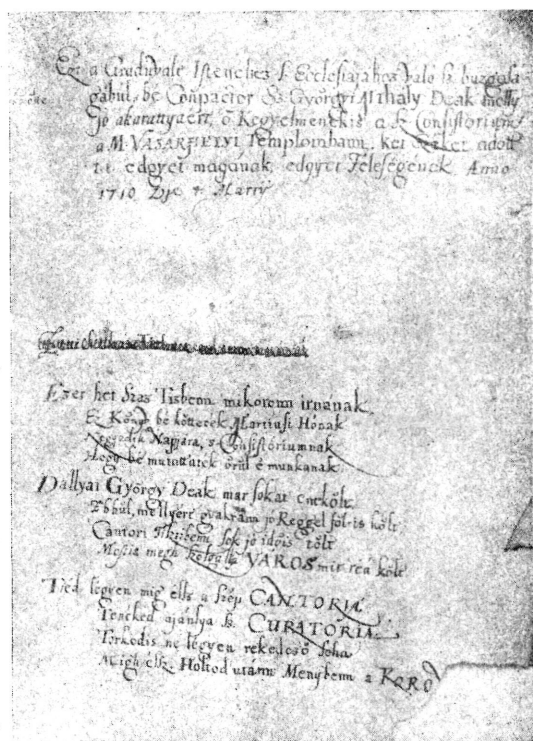 Ezt a Graduale Istenehez s Ecclesiajahoz való sz. buzgosá
gábul, be Conpactor Sz. Györgyi Mihaly Deak melly
jó akarattyaért, ő Kegyelmenekis a Sz. Consistorium
a M. VASARHELYI Templombann, két széket adott
t. i. edgyet magának, edgyet Feleségenek Anno
1710 Die 4 Marty
Ezer het szas Tisbenn mikorenn irnanak,
Ez Könyv bé kötteték Martiusi Hónak
Negyedik Napjára, s Consistóriumnak
Hogy bé mutattaték örül é munkanak
Dallyai György Deak mar sokat énekölt
Ebbül, mellyért gyakrann jó Reggel föl-is költ
Cantori Tisztibenn sok jó idöis tölt
VÁROS mit reá költ
Tiéd légyen mig élsz a szép CANTORIA
Tenéked ajánlya Sz. CURATÓRIA
Torkodis ne légyen rekedesö soha
Migh élsz Holtod utánn Menybenn a KARO